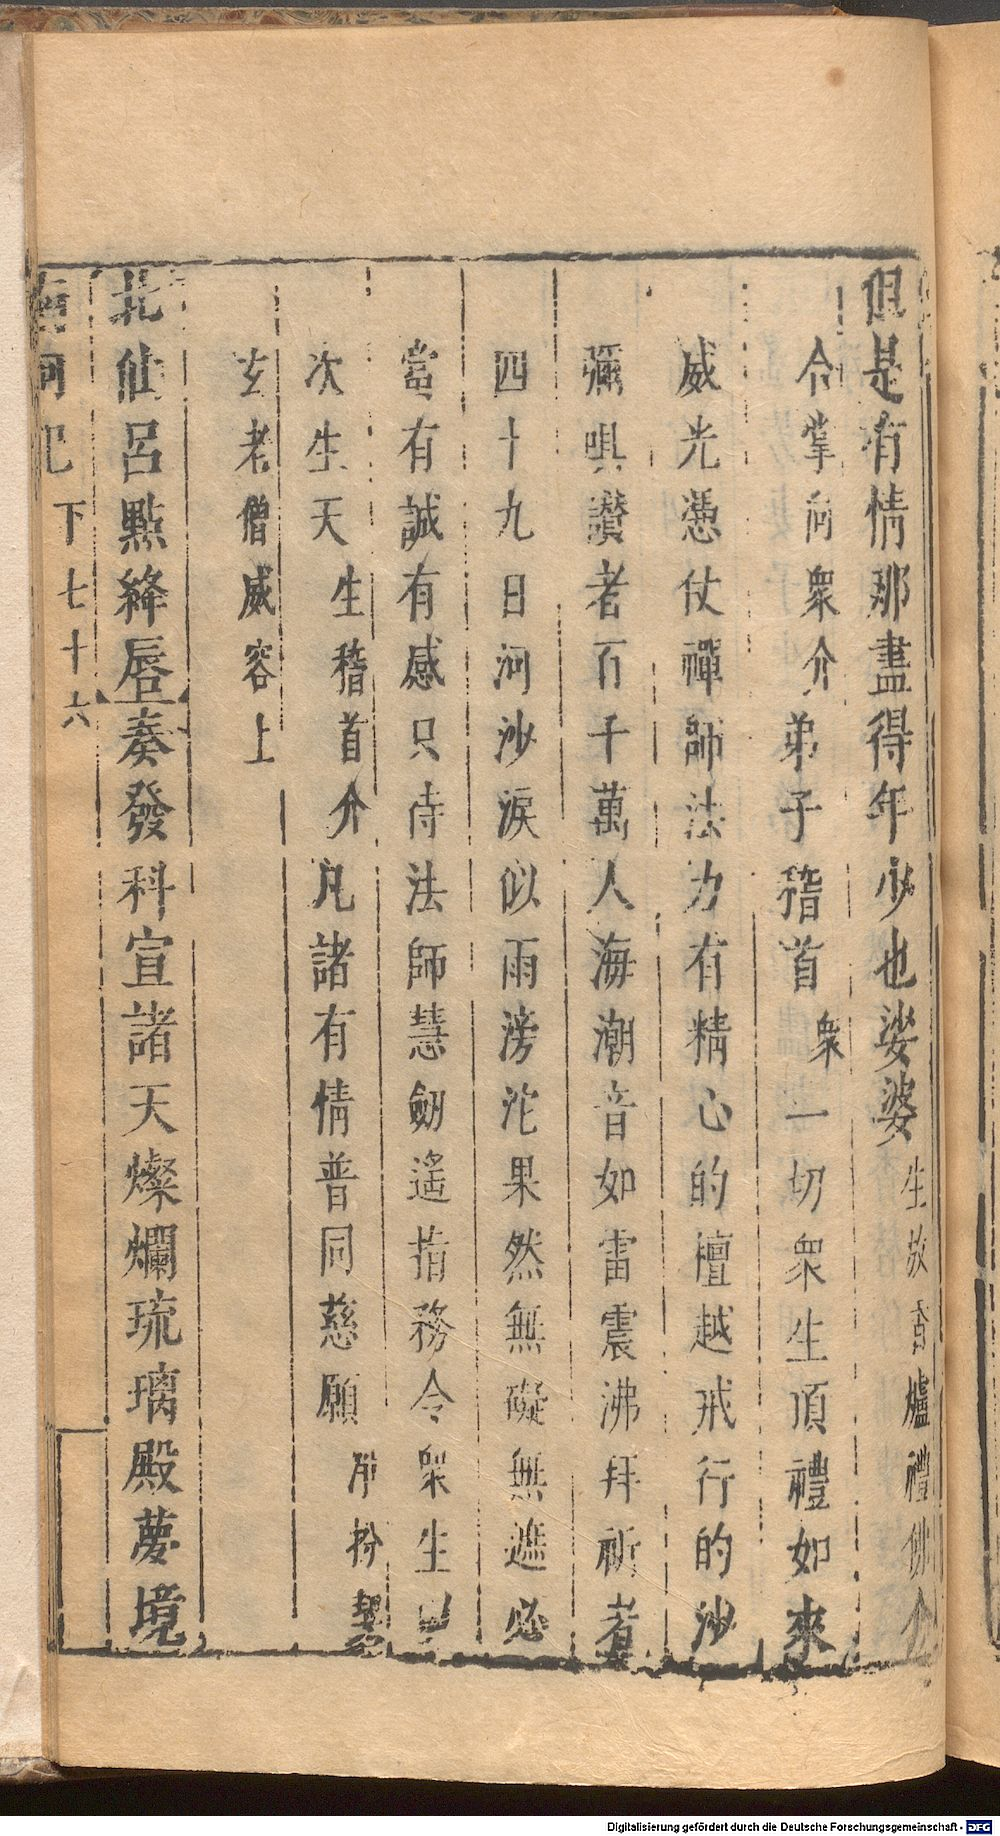 但是有情那盡得年少也娑婆生放香爐禮佛介
合掌向衆介弟子稽首衆一切衆生頂禮如來
威光憑仗禪師法力有精心的檀越戒行的沙
彌唄讃者百千萬人海潮音如雷震沸拜祈者
四十九日河沙淚似雨滂沱果然無礙無遮必
當有誠有感只待法師慧劒遙指務令衆生
次生天生稽首介凡諸有情普同慈願
玄老僧威容上
北仙呂點絳唇奏發科宣諸天燦爛琉璃殿夢境
南柯記 下 七十六
Digitalisierung gefördert durch die Deutsche Forschungsgemeinschaft - DFG